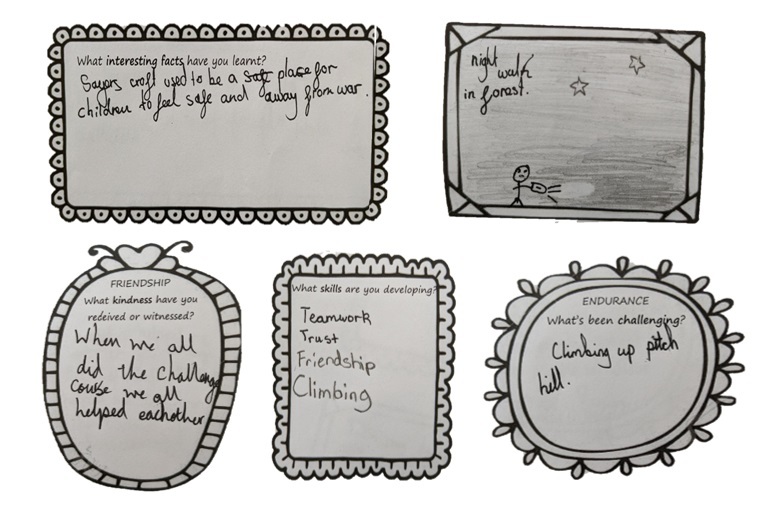 What interesting facts have you learnt?
Sayers croft used to be a safe place for
children to feel safe and away from war.
night
walk
in forest.
FRIENDSHIP
What kindness have you
received or witnessed?
When we all
did the challenge
course we all
helped eachother
What skills are you developing?
Teamwork
Trust
Friendship
Climbing
ENDURANCE
What's been challenging?
Climbing up pitch
hill.